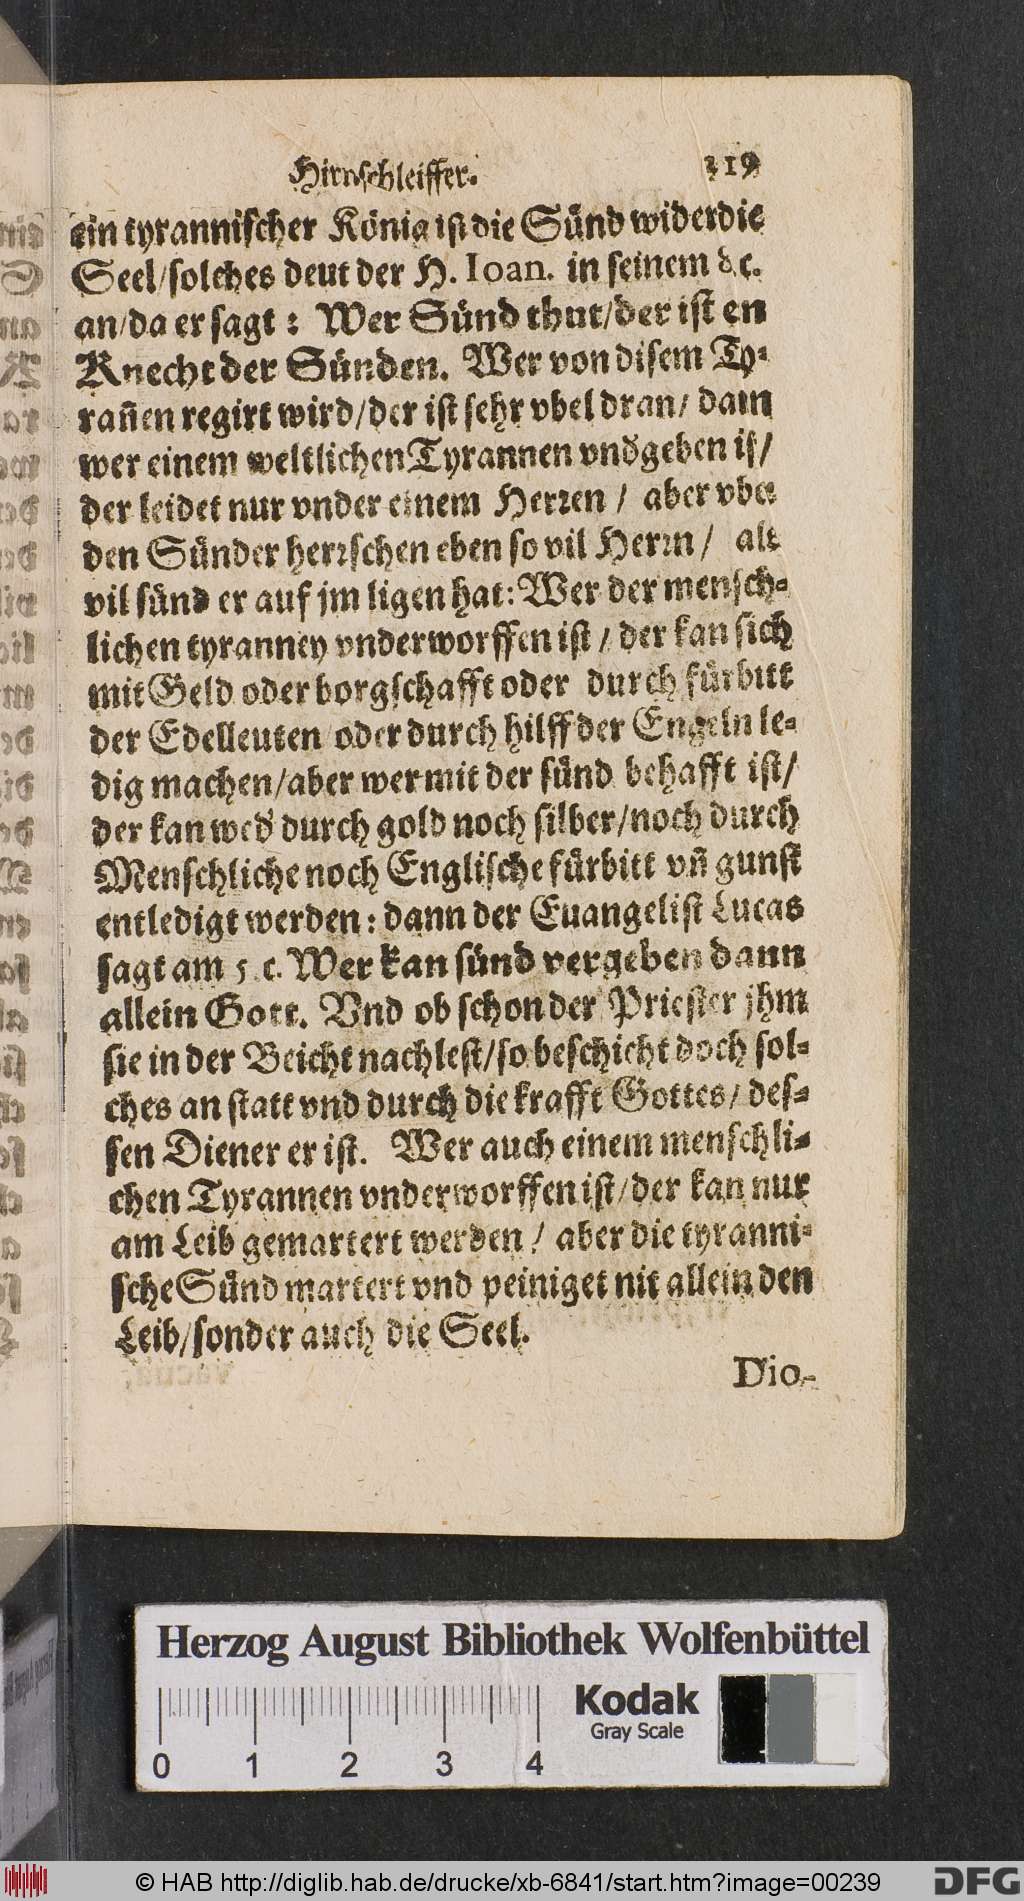 Hirnschleiffer. 219
ein tyrannischer König ist die Sünd wider die
Seel/solches deut der H. Ioan. in seinem 8.c.
an/da er sagt: Wer Sünd thut/der ist en
Knecht der Sünden. Wer von disem Ty-
rañen regirt wird/der ist sehr vbel dran/ dann
wer einem weltlichen Tyrannen vndgeben ist/
der leidet nur vnder einem Herren/ aber vber
den Sünder herrschen eben so vil Herrn/ als
vil sünd er auf jm ligen hat: Wer der mensch-
lichen tyranney vnderworffen ist/der kan sich
mit Geld oder borgschafft oder durch fürbitt
der Edelleuten oder durch hilff der Engeln le-
dig machen/aber wer mit der sünd behafft ist/
der kan wed durch gold noch silber/noch durch
Menschliche noch Englische fürbitt vñ gunst
entledigt werden: dann der Euangelist Lucas
sagt am 5.c. Wer kan sünd vergeben dann
allein Gott. Vnd ob schon der Priester jhm
sie in der Beicht nachlest/so beschicht doch sol-
ches an statt vnd durch die krafft Gottes/des-
sen Diener er ist. Wer auch einem menschli-
chen Tyrannen vnderworffen ist/der kan nur
am Leib gemartert werden/ aber die tyranni-
sche Sünd martert vnd peiniget nit allein den
Leib/sonder auch die Seel.
Dio-
Herzog August Bibliothek Wolfenbüttel
Kodak
Gray Scale
0 1 2 3 4
© HAB http://diglib.hab.de/drucke/xb-6841/start.htm?image=00239
DFG